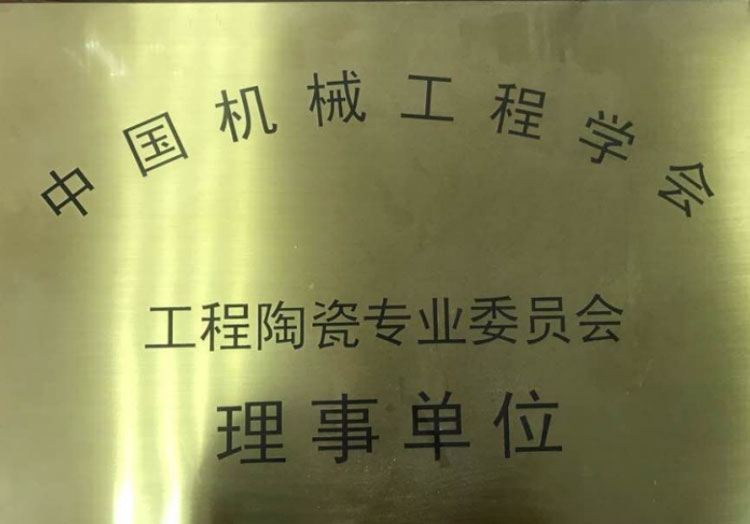 中国机械工程学会
工程陶瓷专业委员会
理事单位